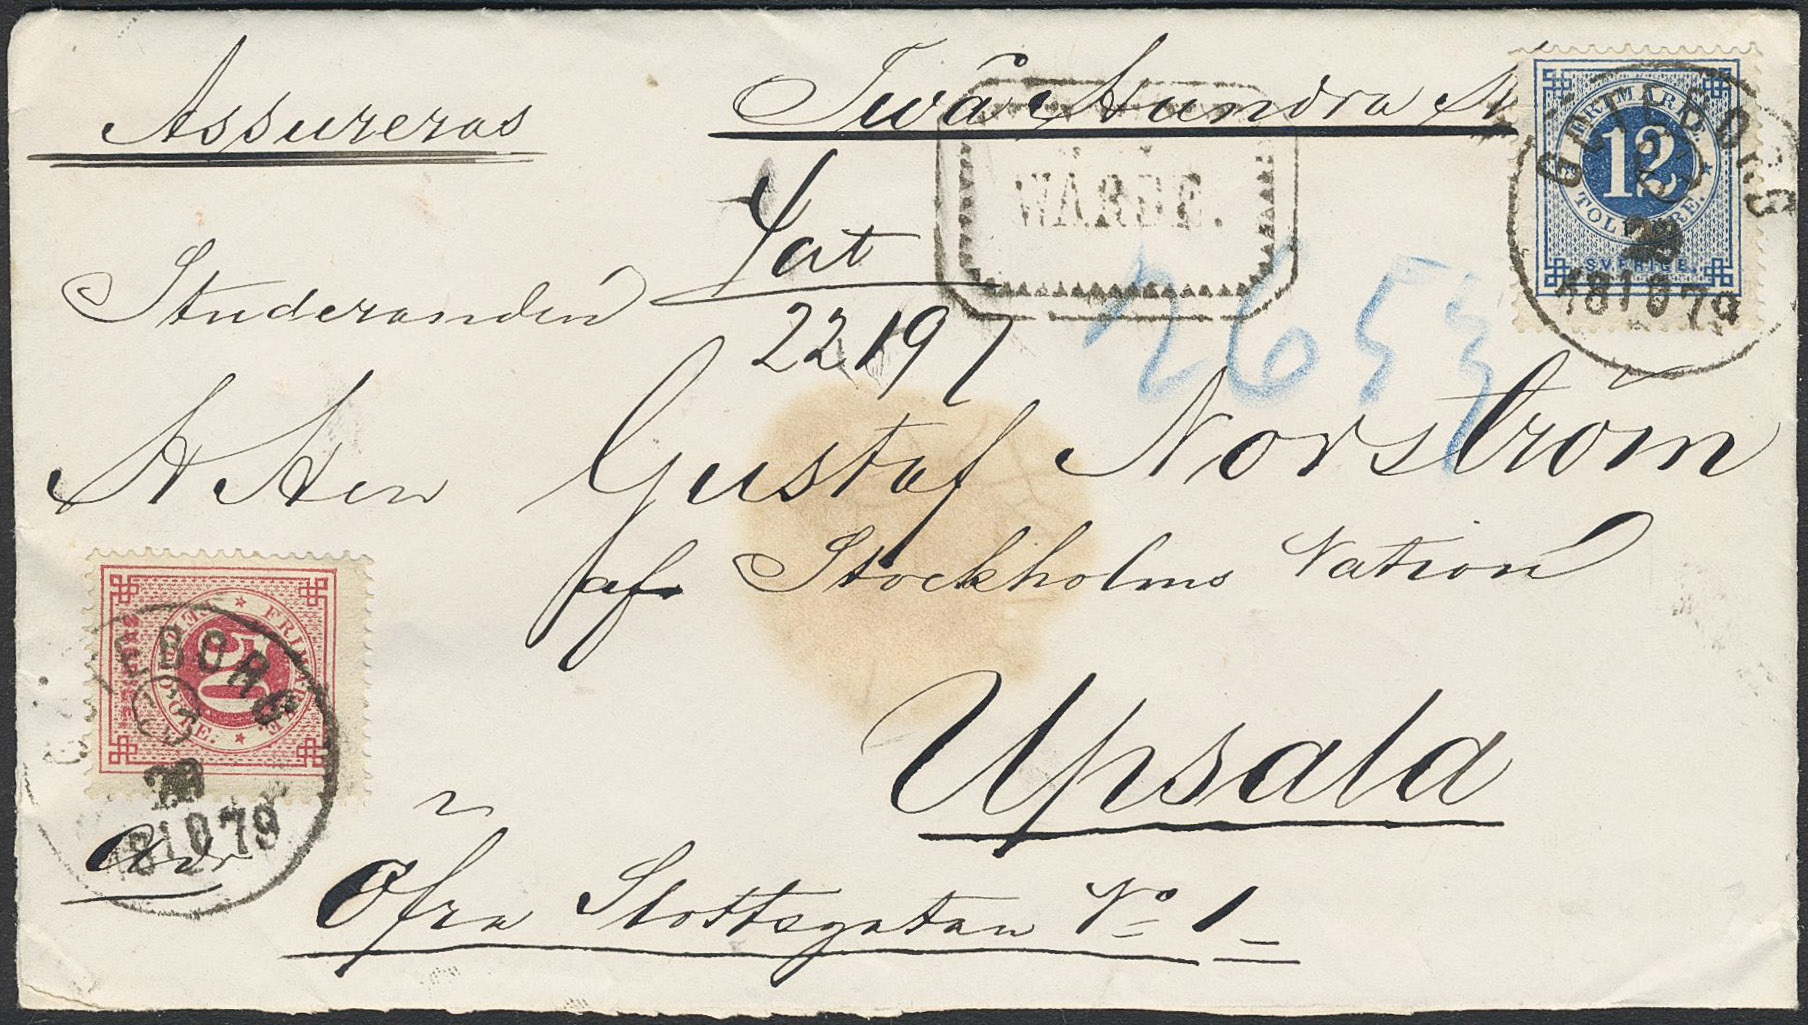 Assureras
Twå Hundra
WÄRDE.
FRIMÄRKE
12
TOLF ÖRE.
SVERIGE
GÖTEBORG
28
18 10 79
Studeranden
22197
2653
H Herr Gustaf Norström
af Stockholms Nation
FRIMÄRKE
20
ÖRE.
GÖTEBORG
28
18 10 79
Upsala
Adr
Öfra Slottsgatan No 1